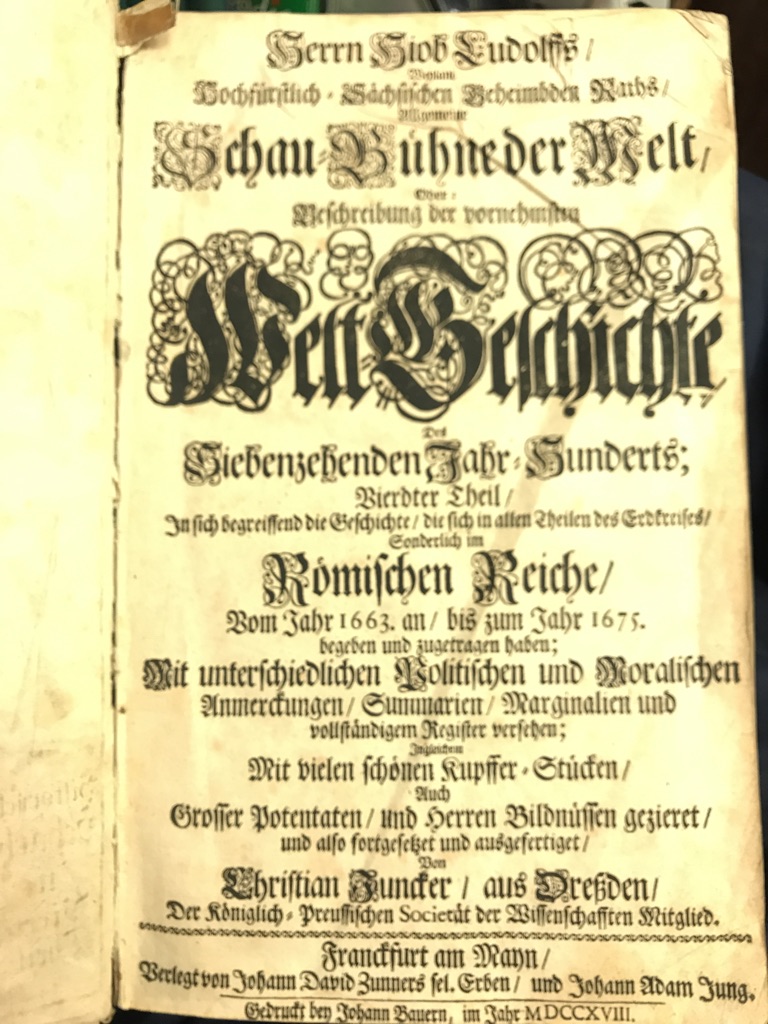 Herrn Hiob Ludolffs/
Weyland
Hochfürstlich-Sächsischen Geheimbden Raths/
Allgemeine
Schau-Bühne der Welt,/
Oder/
Beschreibung der vornehmsten
Welt Geschichte
Des
Siebenzehenden Jahr-Hunderts;
Vierdter Theil/
In sich begreiffend die Geschichte/ die sich in allen Theilen des Erdkreises/
Sonderlich im
Römischen Reiche/
Vom Jahr 1663. an/ bis zum Jahr 1675.
begeben und zugetragen haben;
Mit unterschiedlichen Politischen und Moralischen
Anmerckungen/ Summarien/ Marginalien und
vollständigem Register versehen;
Ingleichem
Mit vielen schönen Kupffer-Stücken/
Auch
Grosser Potentaten/ und Herren Bildnüssen gezieret/
und also fortgesetzet und ausgefertiget/
Von
Christian Juncker/ aus Dreßden/
Der Königlich-Preussischen Societät der Wissenschafften Mitglied.
Franckfurt am Mayn/
Verlegt von Johann David Zunners sel. Erben/ und Johann Adam Jung.
Gedruckt bey Johann Bauern, im Jahr MDCCXVIII.